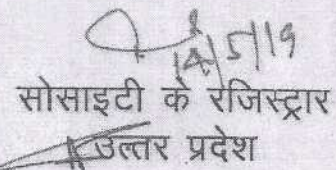 14/5/19
सोसाइटी के रजिस्ट्रार
उत्तर प्रदेश